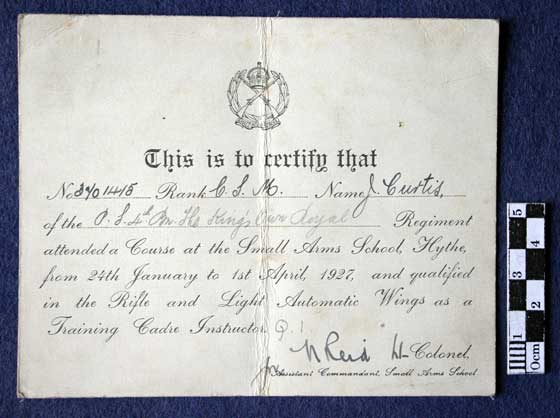 This is to certify that
No 3701445 Rank C. S. M. Name J. Curtis,
of the P. S. 4th Bn. The King's Own Royal Regiment
attended a Course at the Small Arms School, Hythe,
from 24th January to 1st April, 1927, and qualified
in the Rifle and Light Automatic Wings as a
Training Cadre Instructor. Q. 1.
Reid Lt-Colonel,
Assistant Commandant, Small Arms School
0cm 1 2 3 4 5